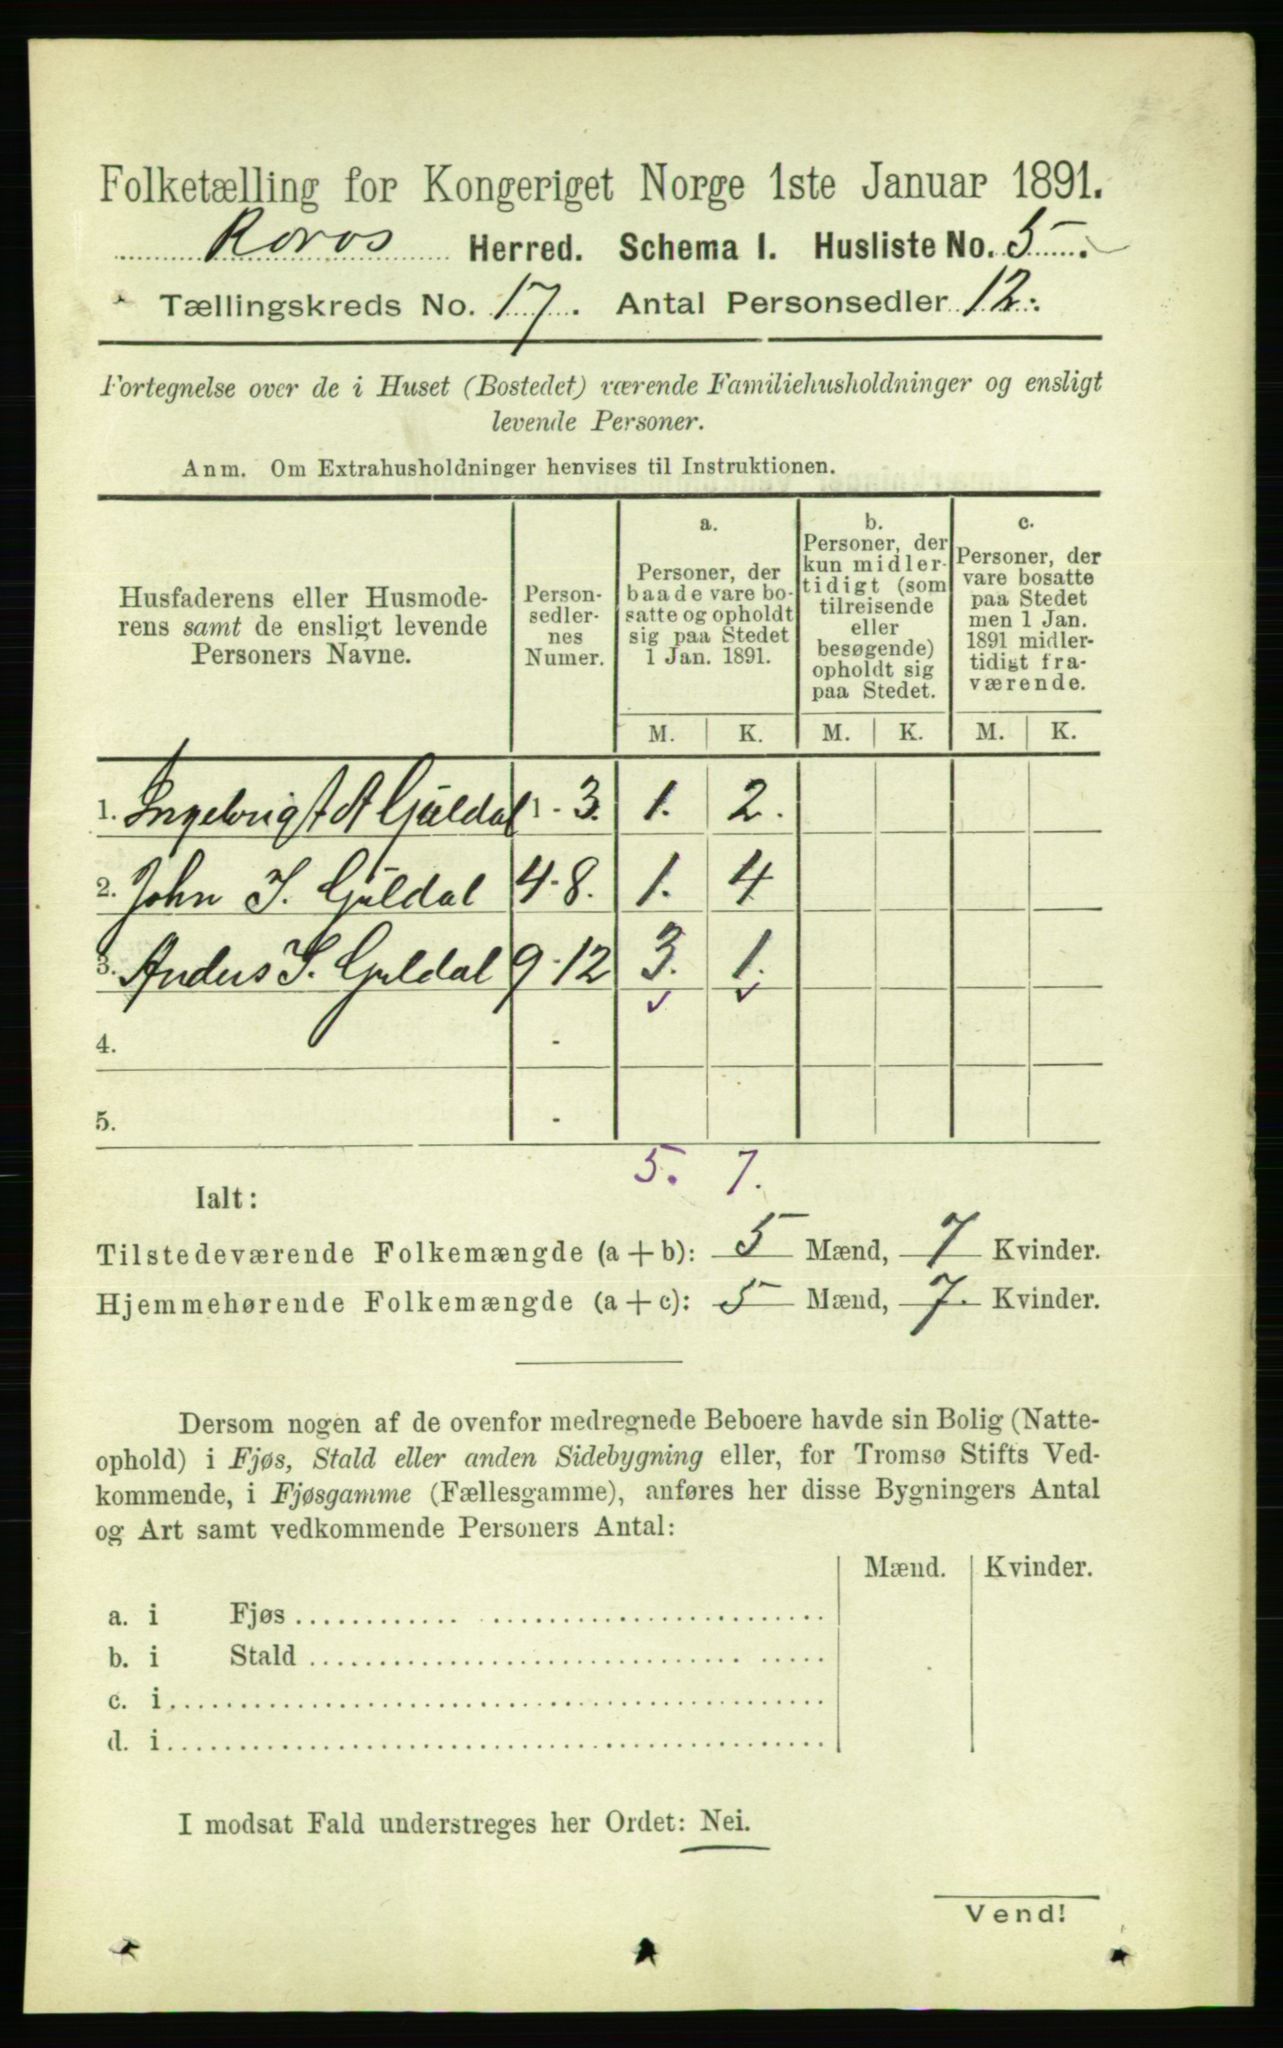 Folketælling for Kongeriget Norge 1ste Januar 1891.
Roros Herred. Schema I. Husliste No. 5.
Tællingskreds No. 17. Antal Personsedler 12.
Fortegnelse over de i Huset (Bostedet) værende Familiehusholdninger og ensligt
levende Personer.
Anm. Om Extrahusholdninger henvises til Instruktionen.
Husfaderens eller Husmode-
rens samt de ensligt levende
Personers Navne.
Person-
sedler-
nes
Numer.
a.
Personer, der
baade vare bo-
satte og opholdt
sig paa Stedet
1 Jan. 1891.
b.
Personer, der
kun midler-
tidigt (som
tilreisende
eller
besøgende)
opholdt sig
paa Stedet.
c.
Personer, der
vare bosatte
paa Stedet
men 1 Jan.
1891 midler-
tidigt fra-
værende.
M. K. M. K. M. K.
1. Ingebrigt A Guldal 1 - 3. 1. 2.
2. John I. Guldal 4 - 8. 1. 4
3. Anders I. Guldal 9 - 12 3. 1.
4. -
5. -
5. 7.
Ialt:
Tilstedeværende Folkemængde (a + b): 5 Mænd, 7 Kvinder.
Hjemmehørende Folkemængde (a + c): 5 Mænd, 7. Kvinder.
Dersom nogen af de ovenfor medregnede Beboere havde sin Bolig (Natte-
ophold) i Fjøs, Stald eller anden Sidebygning eller, for Tromsø Stifts Ved-
kommende, i Fjøsgamme (Fællesgamme), anføres her disse Bygningers Antal
og Art samt vedkommende Personers Antal:
Mænd. Kvinder.
a. i Fjøs
b. i Stald
c. i
d. i
I modsat Fald understreges her Ordet: Nei.
Vend!